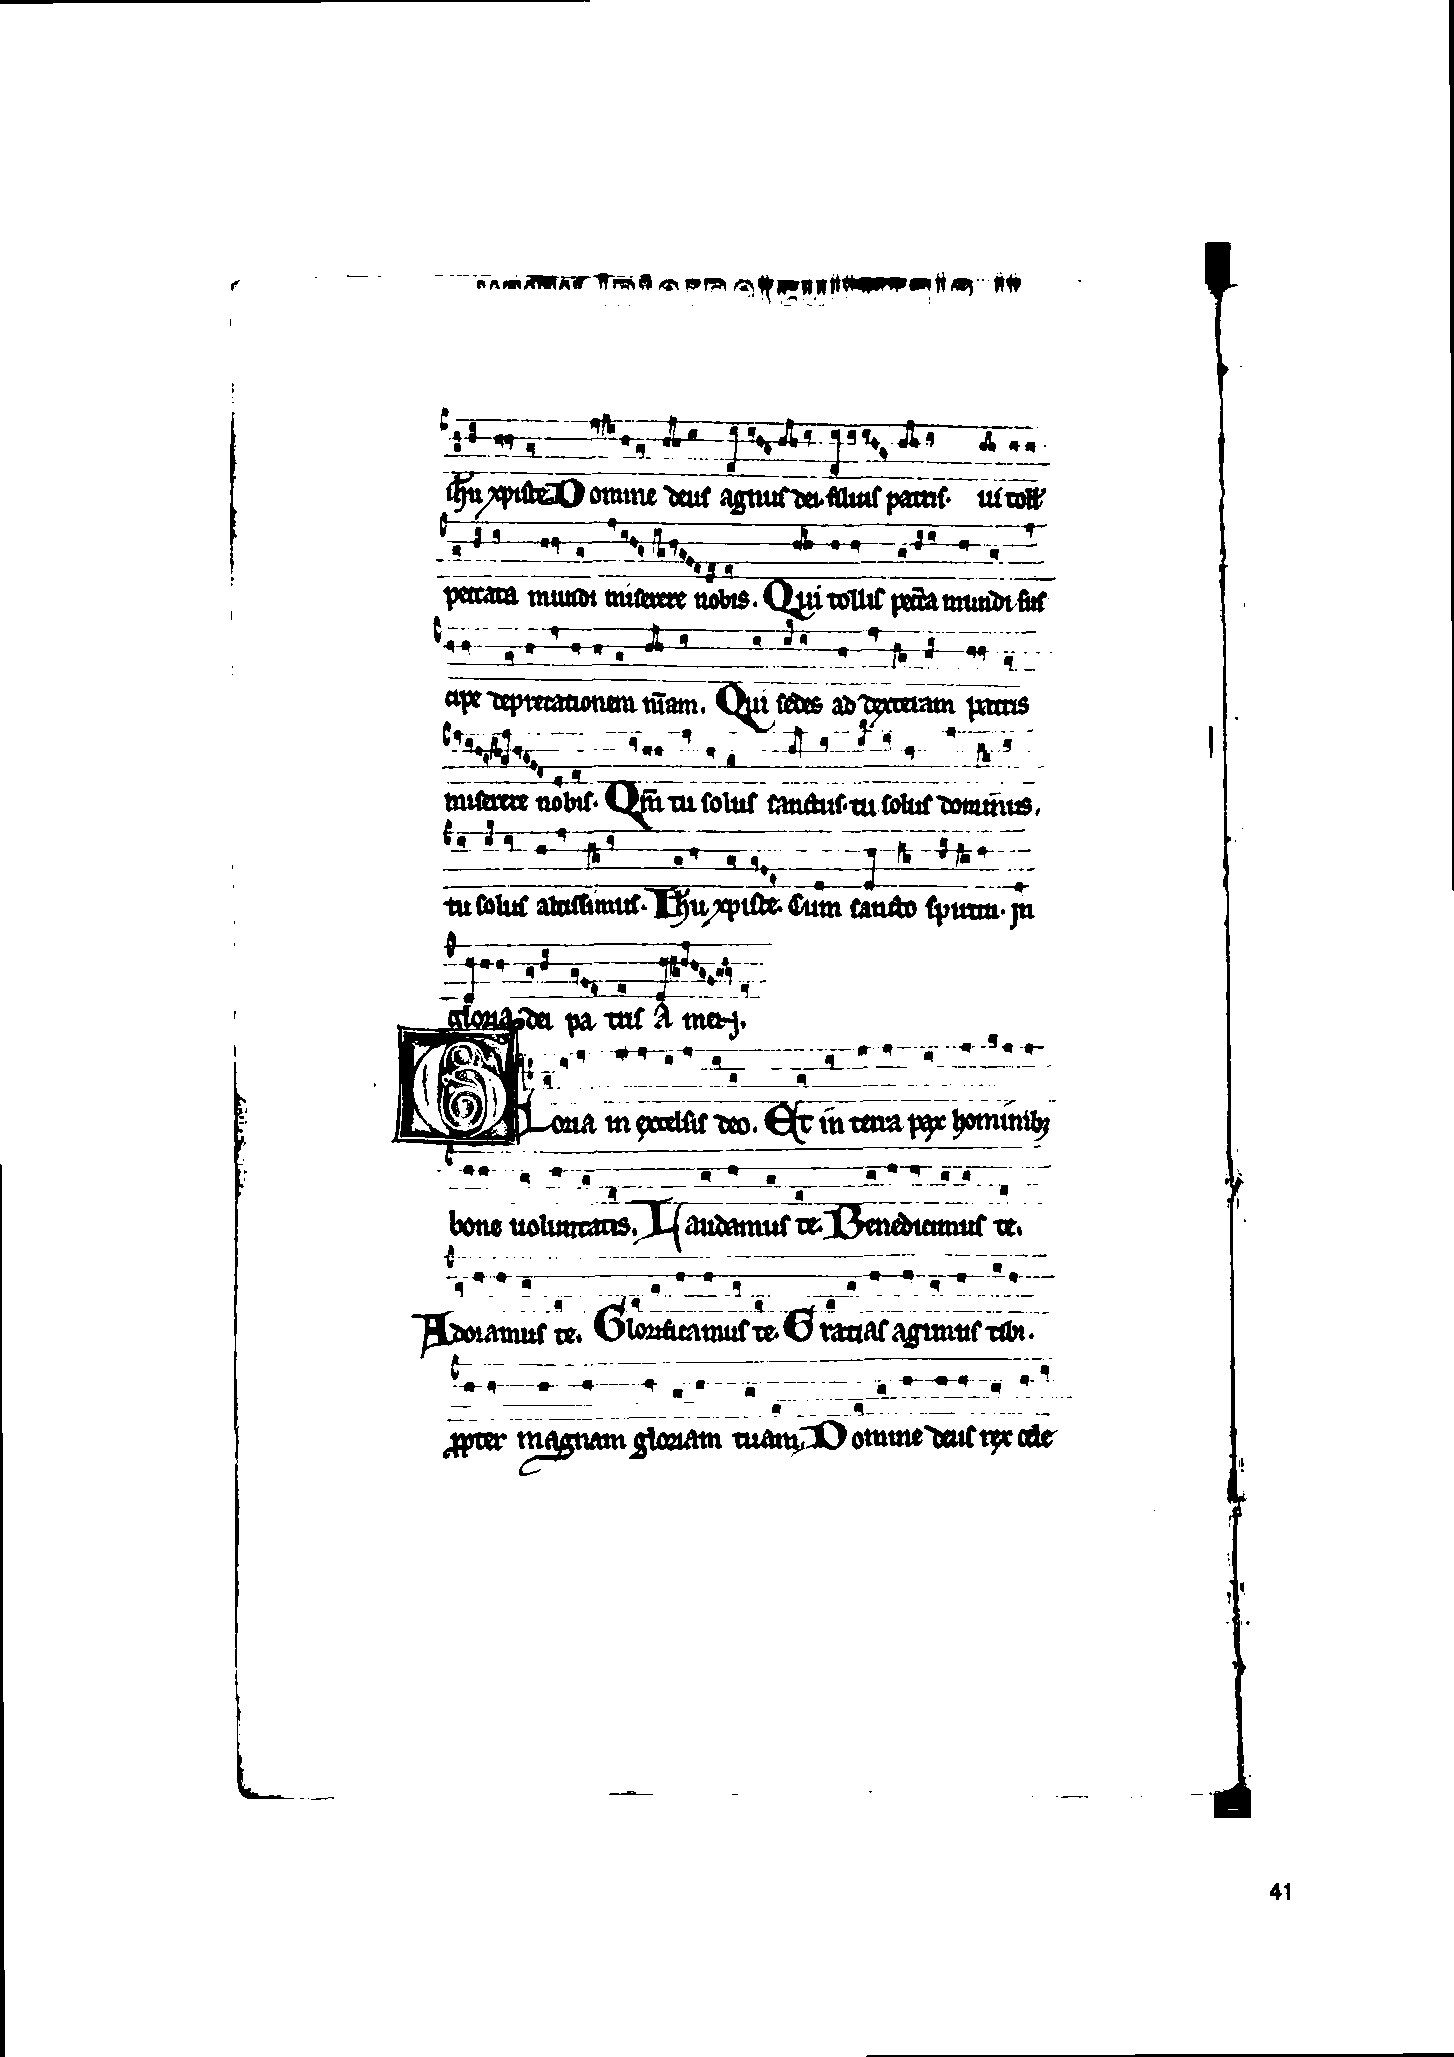 ihu xpiste Domine deus agnus dei. filius patris. ui toll'
peccata mundi miserere nobis. Qui tollis pecc̄a mundi sus
cipe deprecationem nr̄am. Qui sedes ad dexteram patris
miserere nobis. Qm̄ tu solus sanctus. tu solus dominus.
tu solus altissimus. Ihu xpiste. Cum sancto spiritu. in
gloria dei pa tris A men.
Gloria in excelsis deo. Et in terra pax hominibꝫ
bone uoluntatis. Laudamus te. Benedicimus te.
Adoramus te. Glorificamus te. Gratias agimus tibi.
ꝓpter magnam gloriam tuam. Domine deus rex cele
41